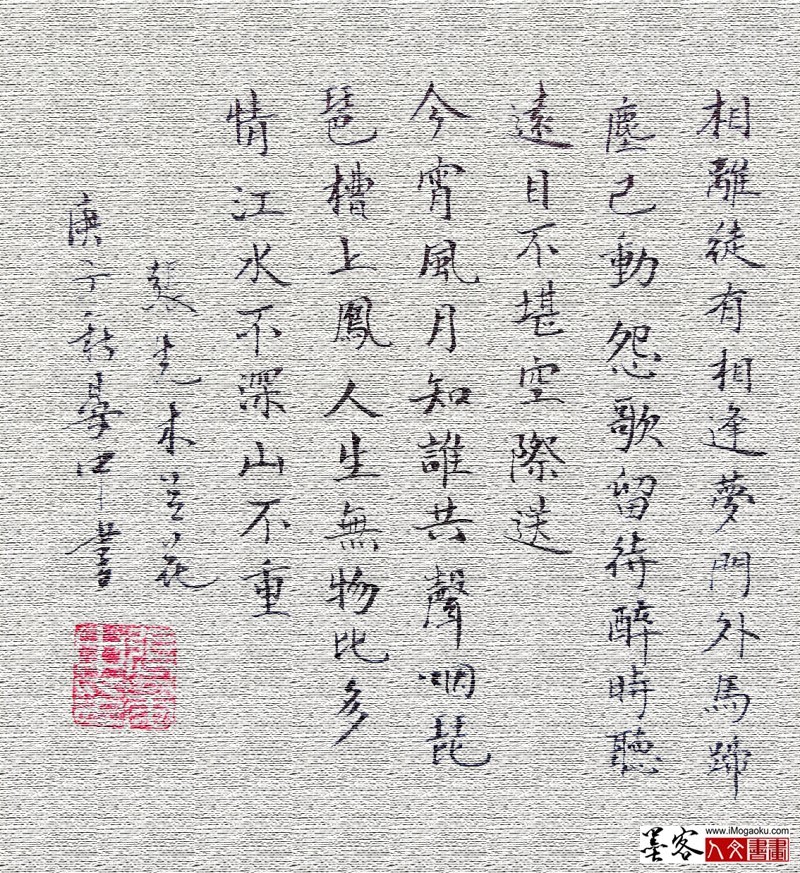 相離徒有相逢夢門外馬蹄
塵已動怨歌留待醉時聽
遠日不堪空際送
今宵風月知誰共聲咽琵
琶槽上鳳人生無物比多
情江水不深山不重
張先木兰花
庚子秋中書
墨客
www.iMogaoku.com
人文書畫